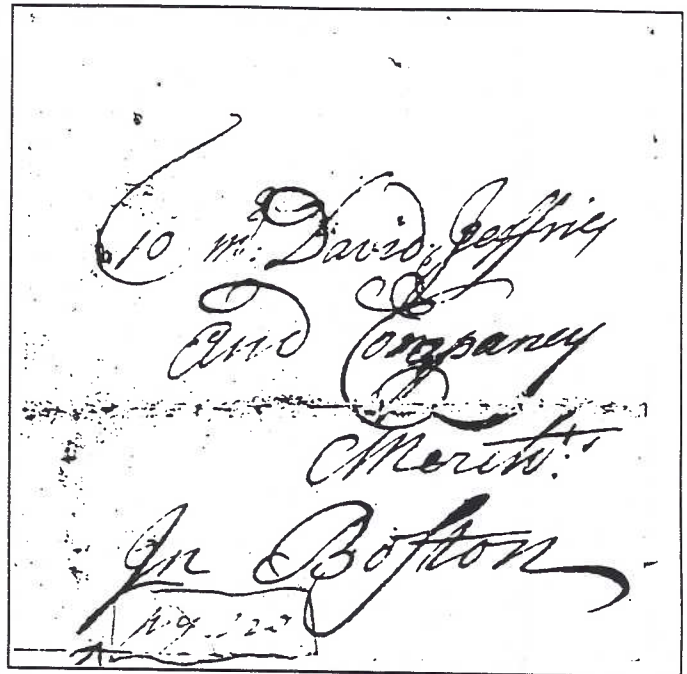 To mr. David Jeffries
and Comppaney
Mercht.
In Boston